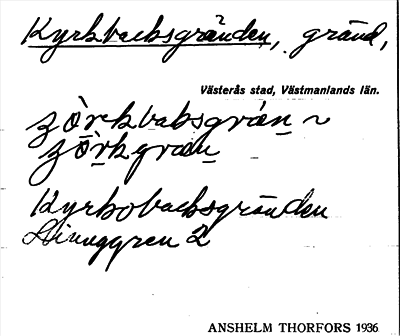 Kyrkbacksgränden, gränd,
Västerås stad, Västmanlands län.
ʒòrkbaksgrän ~
ʒòrkgrän
Kyrkobacksgränden
Linnggren 2
ANSHELM THORFORS 1936